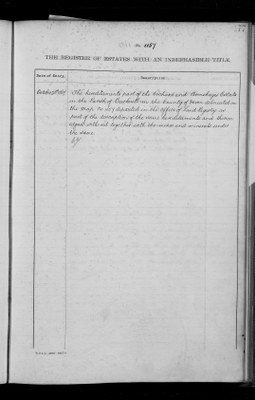 No. 1187
THE REGISTER OF ESTATES WITH AN INDEFEASIBLE TITLE.
DATE OF ENTRY.
DESCRIPTION.
The hereditaments part of the and Estate
in the Parish of in the County of delineated in
the Map No. 1187 deposited in the Office of Land Registry as
part of the description of the same hereditaments and thereon
edged with red together with the mines and minerals under
the same